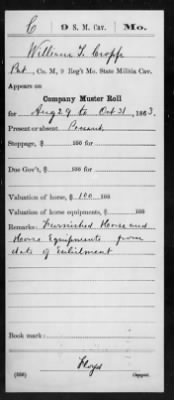 C 9 S. M. Cav. Mo.
William L. Cropp
Pvt, Co. M, 9 Reg't Mo. State Militia Cav.
Appears on
Company Muster Roll
for Aug 29 to Oct 31, 1863.
Present or absent Present
Stoppage, $ 100 for
Due Gov't, $ 100 for
Valuation of horse, $ 100 100
Valuation of horse equipments, $ 100
Remarks: Furnished Horse and
Horse Equipments from
date of Enlistment
Book mark:
Floyd
(356) Copyist.